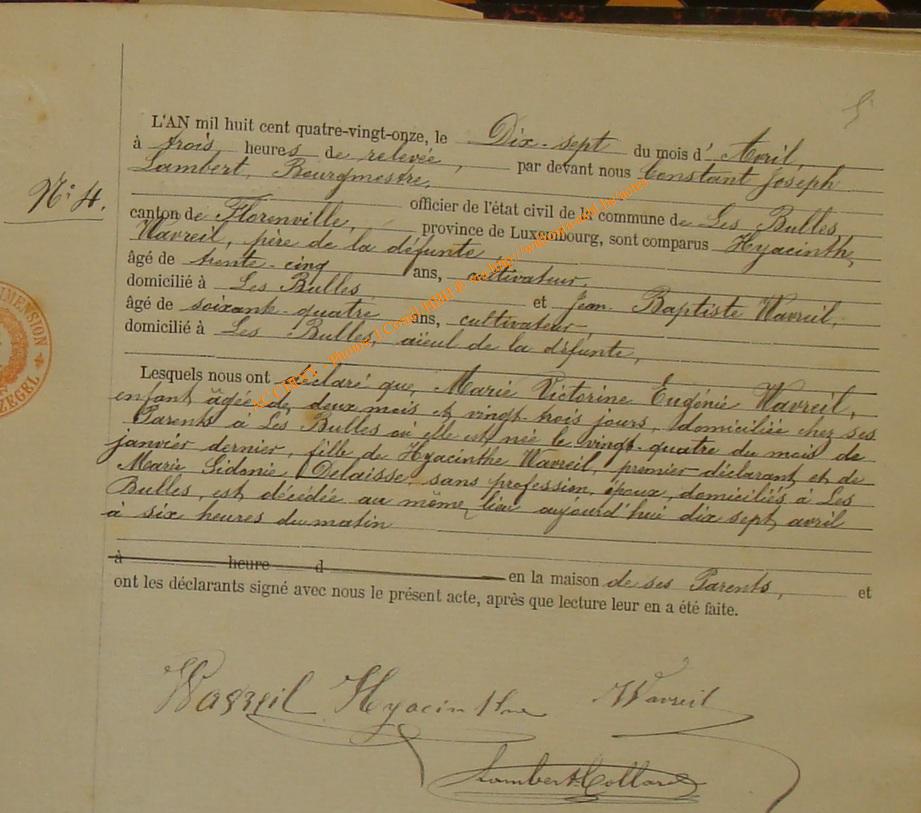 5
L'AN mil huit cent quatre-vingt-onze, le Dix-sept du mois d' Avril,
à trois heures de relevée, par devant nous Constant Joseph
Lambert, Bourgmestre,
officier de l'état civil de la commune de Les Bulles,
N° 4.
canton de Florenville, province de Luxembourg, sont comparus Hyacinth,
Wavreil, père de la défunte
âgé de trente-cinq ans, cultivateur,
domicilié à Les Bulles et Jean Baptiste Wavreil,
âgé de soixant-quatre ans, cultivateur,
domicilié à Les Bulles, aïeul de la défunte,
Lesquels nous ont déclaré que, Marie Victorine Eugénie Wavreil,
enfant âgée de deux mois et vingt trois jours, domiciliée chez ses
Parents à Les Bulles où elle est née le vingt-quatre du mois de
janvier dernier, fille de Hyacinthe Wavreil, premier déclarant et de
Marie Sidonie Delaisse, sans profession, époux, domiciliés à Les
Bulles, est décédée au même lieu aujourd'hui dix sept avril
à six heures du matin
à heure d en la maison de ses Parents, et
ont les déclarants signé avec nous le présent acte, après que lecture leur en a été faite.
Wavreil Hyacinthe Wavreil
Lambert Collard
DIMENSION
ZEGEL